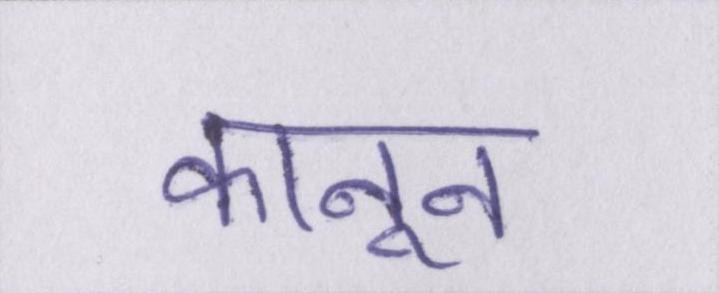 कानून